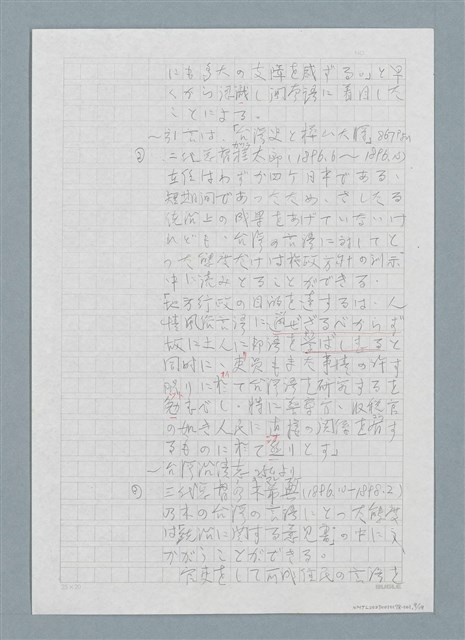 にも多大の支障を感ずる。」と早
くから認識し、国語に着目した
ことによる。
～引文は、「台湾史と樺山大将」
② 二代总督桂太郎(1896.6〜1896.10)
在任はわずか四ケ月半である、
短期間であったため、さしたる
統治上の成果をあげていないけ
れども、台湾の言語に対してと
った態度だけは施政方針の列示
中に読みとることができる.
地方行政の目的を達するは、人
情風俗言語に通ぜざるべからず
故に土人に邦語を学ばしむると
同時に、吏員もまた事情の許す
限りに於て台湾語を研究するを
勉むべし、特に
の如き人民に直接の関係を有す
るものに於て然りとす」
～台湾
③ 三代总督乃木希典(1896.10-1898.2)
乃木の台湾の言語にとった態度
は統治に対する意見書」の中にう
かがうことができる。
官吏をして所成住民の言語を